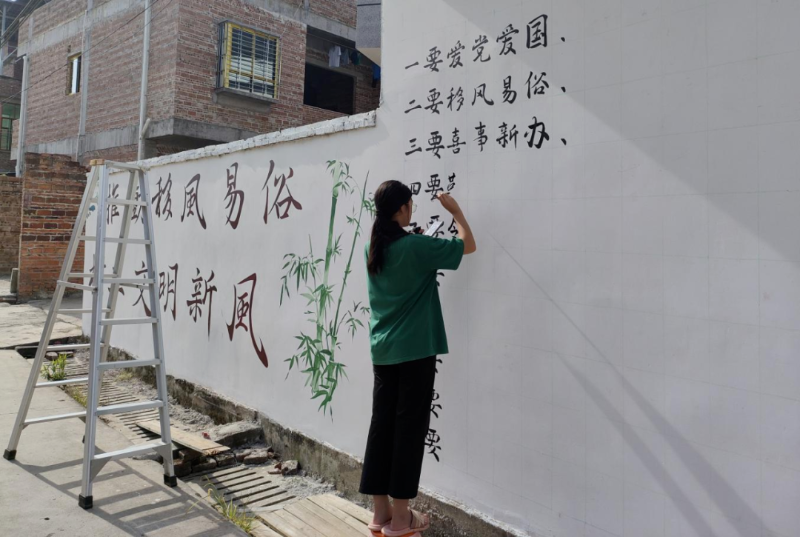 移風易俗
文明新風
一要爱党爱国、
二要移风易俗、
三要喜事新办、
四要
要
要
要